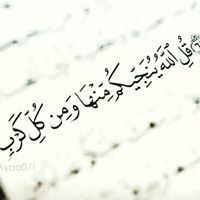 قُلِ ٱللَّهُ يُنَجِّيكُم مِّنْهَا وَمِن كُلِّ كَرْبٍ
Ayaa071